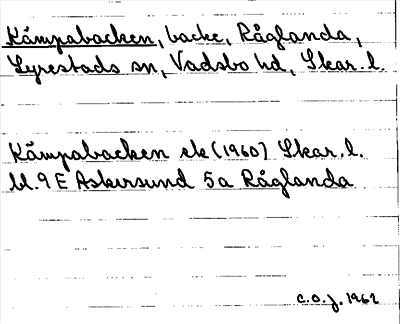 Kämpabacken, backe, Råglanda,
Lyrestads sn, Vadsbo hd, Skar. l.
Kämpabacken ek (1960) Skar. l.
bl. 9 E Askersund 5a Råglanda
C.O.J. 1962